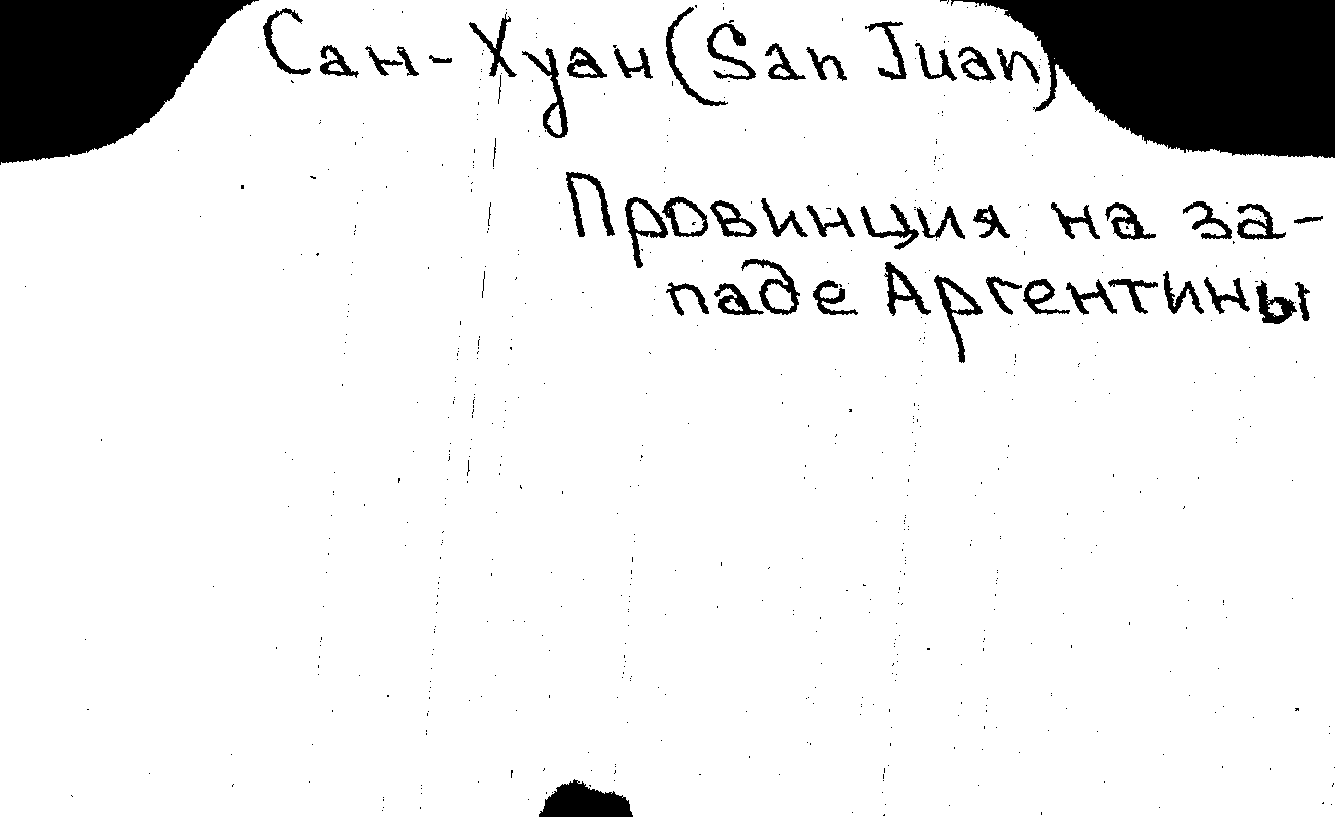 Сан-Хуан (San Juan)
Провинция на за-
паде Аргентины